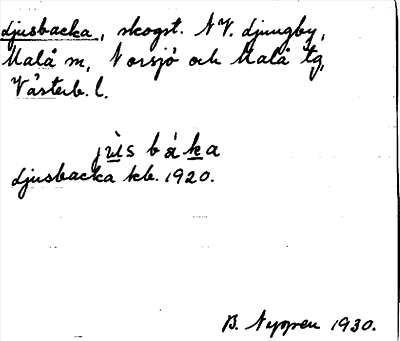 Ljusbacka, skogst. NV. Ljungby,
Malå m, Norsjö och Malå tg,
Västerb. l.
jùs báka
Ljusbacka kb. 1920.
B. Nygren 1930.